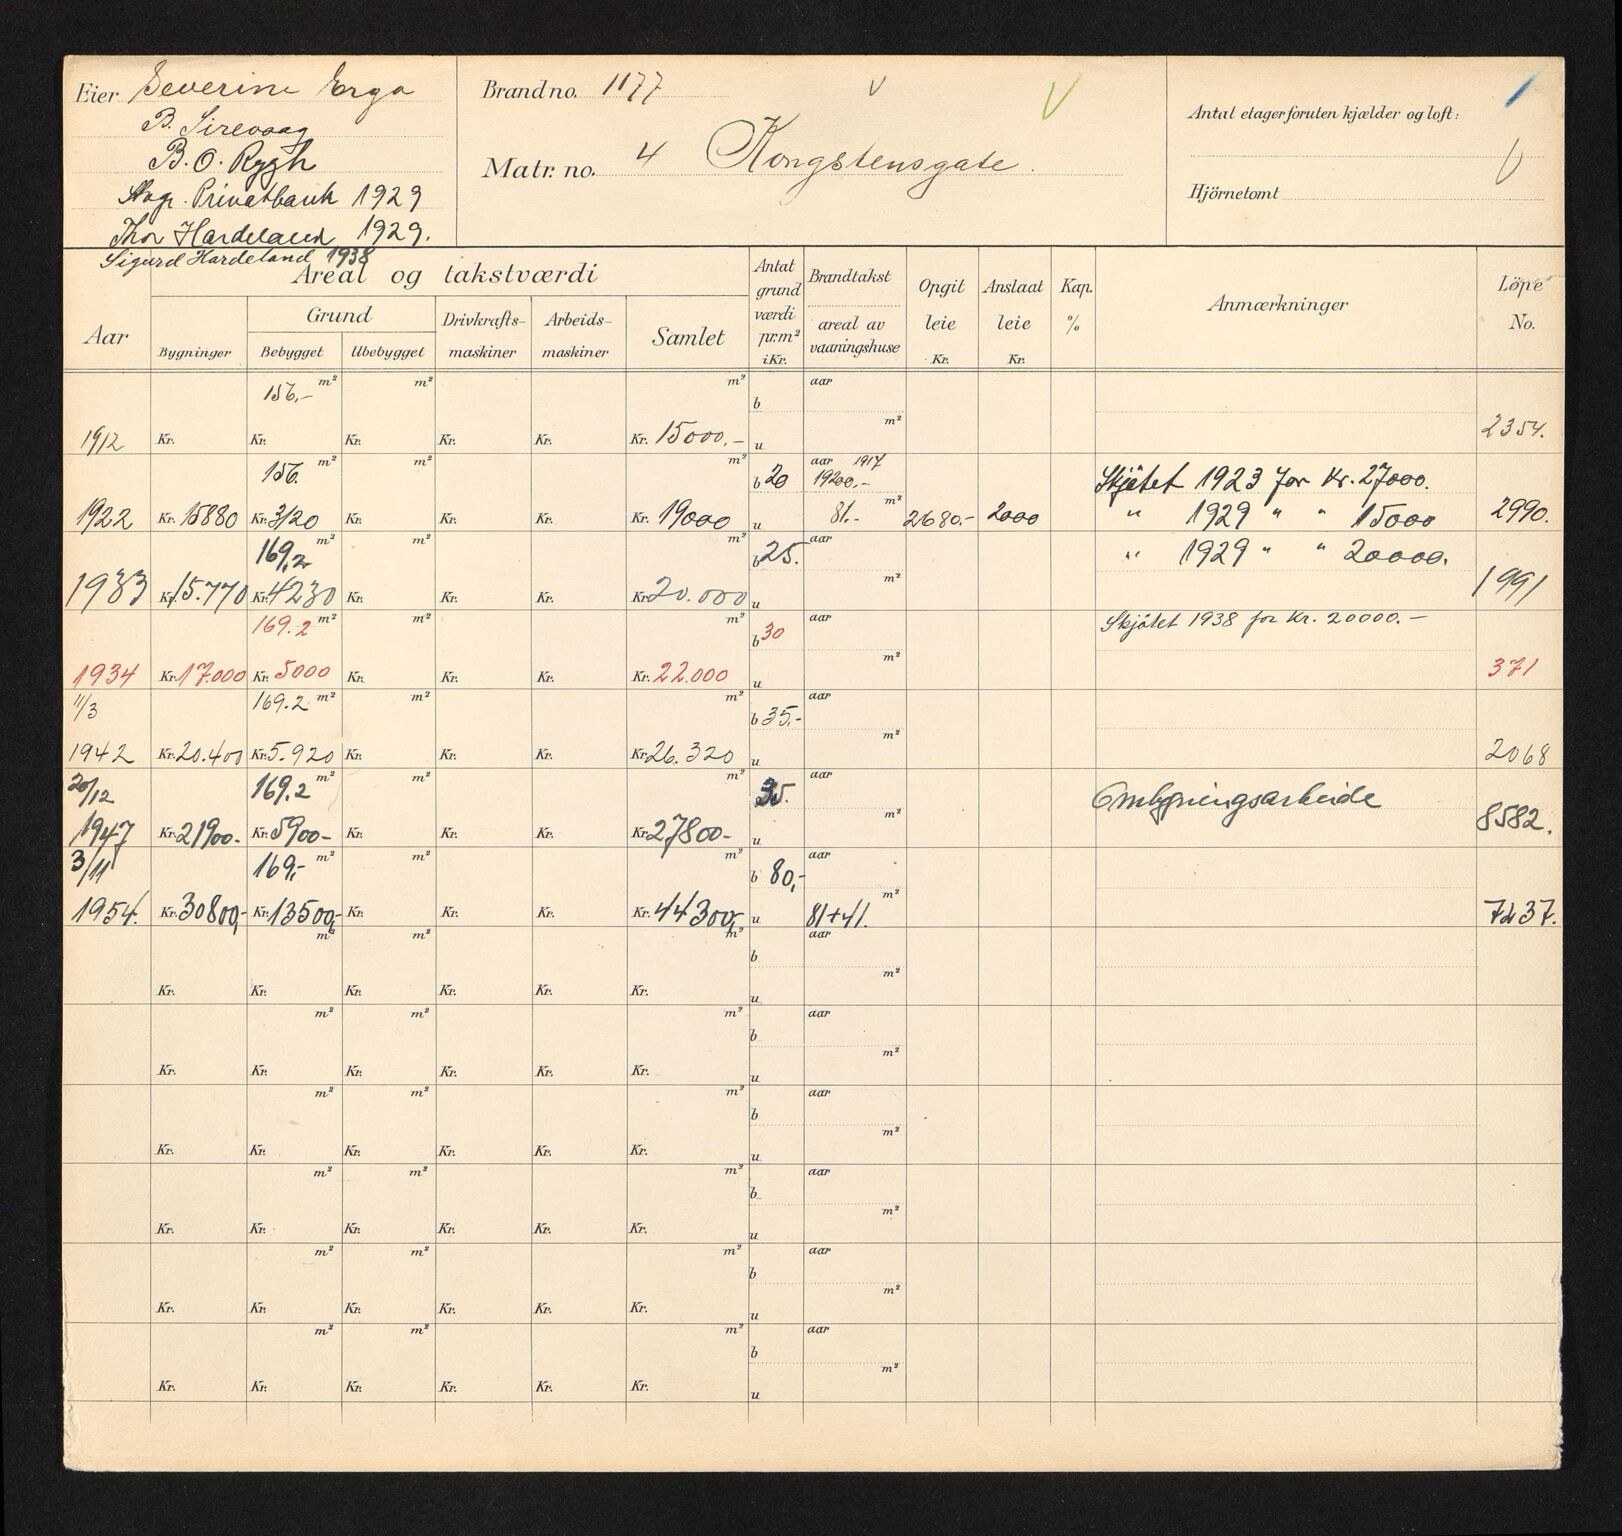 Eier Severine Erga
B. Sirevaag
B. O. Rygh
Stvgr. Privatbank 1929
Thor Hardeland 1929.
Sigurd Hardeland 1938
Brandno. 1177
Matr. no. 4 Kongstensgate
Antal etager foruten kjælder og loft:
Hjörnetomt
Aar
Areal og takstværdi
Bygninger
Grund
Bebygget
Ubebygget
Drivkrafts-
maskiner
Arbeids-
maskiner
Samlet
Antat
grund
værdi
pr.m²
i Kr.
Brandtakst
areal av
vaaningshuse
Opgit
leie
Kr.
Anslaat
leie
Kr.
Kap.
%
Anmærkninger
Löpe
No.
156,- m² m² m² b aar
m²
1912 Kr. Kr. Kr. Kr. Kr. Kr. 15000.- u 2354.
156. m² m² m² b 20 aar 1917
19200.- Skjötet 1923 for Kr. 27000.
1922 Kr. 15880 Kr. 3120 Kr. Kr. Kr. Kr. 19000 u 81.- m² 2680.- 2000 " 1929 " " 15000 2990.
169,2 m² m² m² b 25. aar " 1929 " " 20000.
1933 Kr. 15.770 Kr. 4230 Kr. Kr. Kr. Kr. 20.000 u m² 1991
169.2 m² m² m² b 30 aar Skjötet 1938 for Kr. 20000.-
1934 Kr. 17.000 Kr. 5000 Kr. Kr. Kr. Kr. 22.000 u m² 371
11/3 169.2 m² m² m² b 35.- aar
1942 Kr. 20.400 Kr. 5.920 Kr. Kr. Kr. Kr. 26.320 u m² 2068
20/12 169,2 m² m² m² 35. aar Ombygningsarbeide
1947 Kr. 21900.- Kr. 5900- Kr. Kr. Kr. Kr. 27800- u m² 8582.
3/11 169,- m² m² m² b 80,- aar
1954. Kr. 30800,- Kr. 13500,- Kr. Kr. Kr. Kr. 44300,- u 81+41. m² 7237.
m² m² m² b aar
Kr. Kr. Kr. Kr. Kr. Kr. u m²
m² m² m² b aar
Kr. Kr. Kr. Kr. Kr. Kr. u m²
m² m² m² b aar
Kr. Kr. Kr. Kr. Kr. Kr. u m²
m² m² m² b aar
Kr. Kr. Kr. Kr. Kr. Kr. u m²
m² m² m² b aar
Kr. Kr. Kr. Kr. Kr. Kr. u m²
m² m² m² b aar
Kr. Kr. Kr. Kr. Kr. Kr. u m²